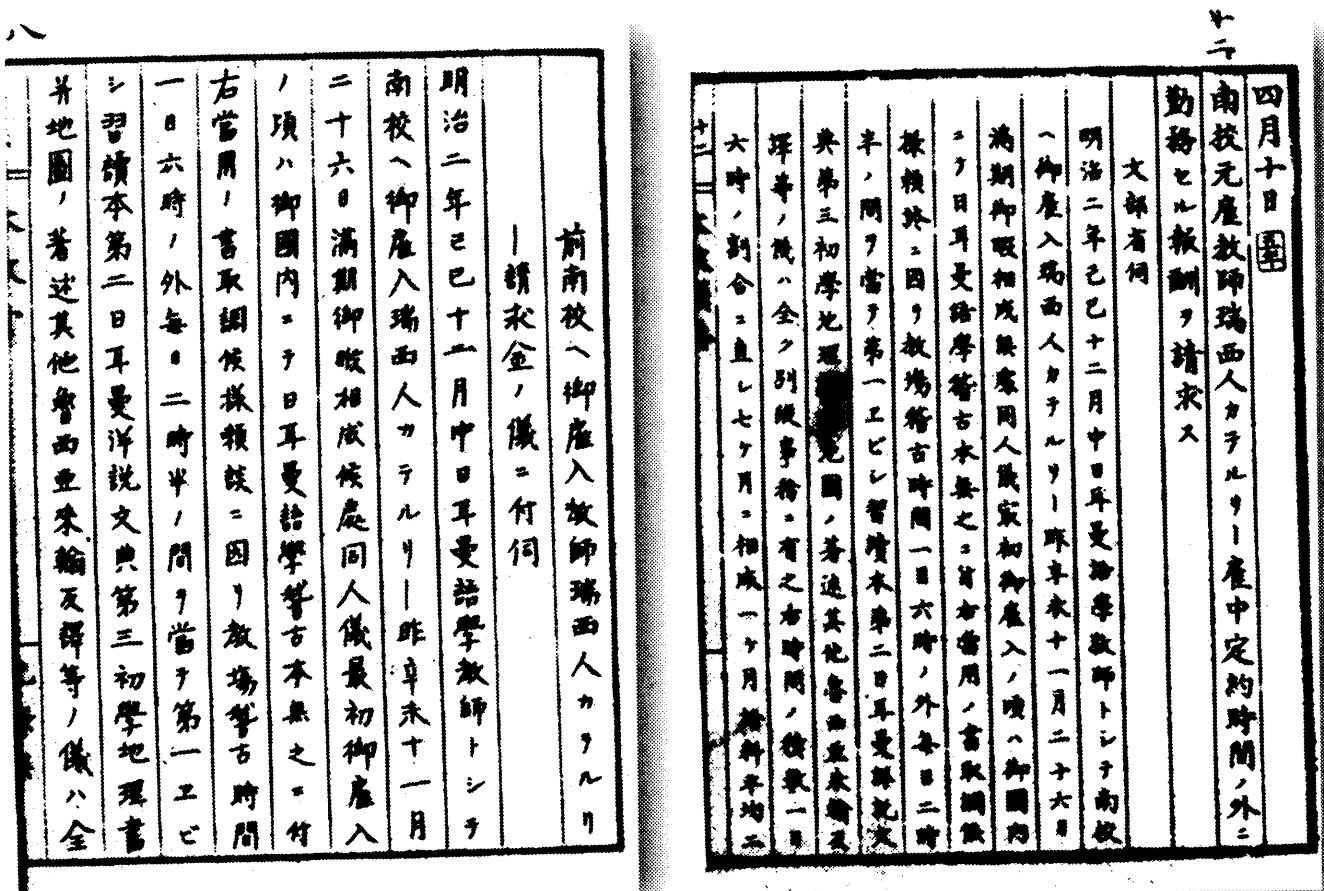 四月十日
南校元雇教師瑞西人カデルリー雇中定約時間ノ外ニ
勤務セル報酬ヲ請求ス
文部省伺
明治二年己巳十二月中日耳曼語學教師トシテ南校
ヘ御雇入瑞西人カデルリー昨辛未十一月二十六日
滿期御暇相成候處同人儀最初御雇入ノ頃ハ御國内
ニテ日耳曼語學稽古本無之ニ付右當用ノ書取調候
様頼談ニ因リ教場稽古時間一日六時ノ外每日二時
半ノ間ヲ當テ第一エビシ習讀本第二日耳曼譯説文
典第三初學地理圖ノ著述其他魯西亜来翰反
譯等ノ儀ハ全ク別段事務ニ有之右時間ノ積數一日
六時ノ割合ニ直シ七ケ月ニ相成一ケ月給料平均ニ
十二
八
前南校ヘ御雇入教師瑞西人カデルリ
ー請求金ノ儀ニ付伺
明治二年己巳十二月中日耳曼語學教師トシテ
南校ヘ御雇入瑞西人カデルリー昨辛未十一月
二十六日滿期御暇相成候處同人儀最初御雇入
ノ頃ハ御國内ニテ日耳曼語學稽古本無之ニ付
右當用ノ書取調候様頼談ニ因リ教場稽古時間
一日六時ノ外每日二時半ノ間ヲ當テ第一エビ
シ習讀本第二日耳曼洋説文典第三初學地理書
并地圖ノ著述其他魯西亜来翰反譯等ノ儀ハ全